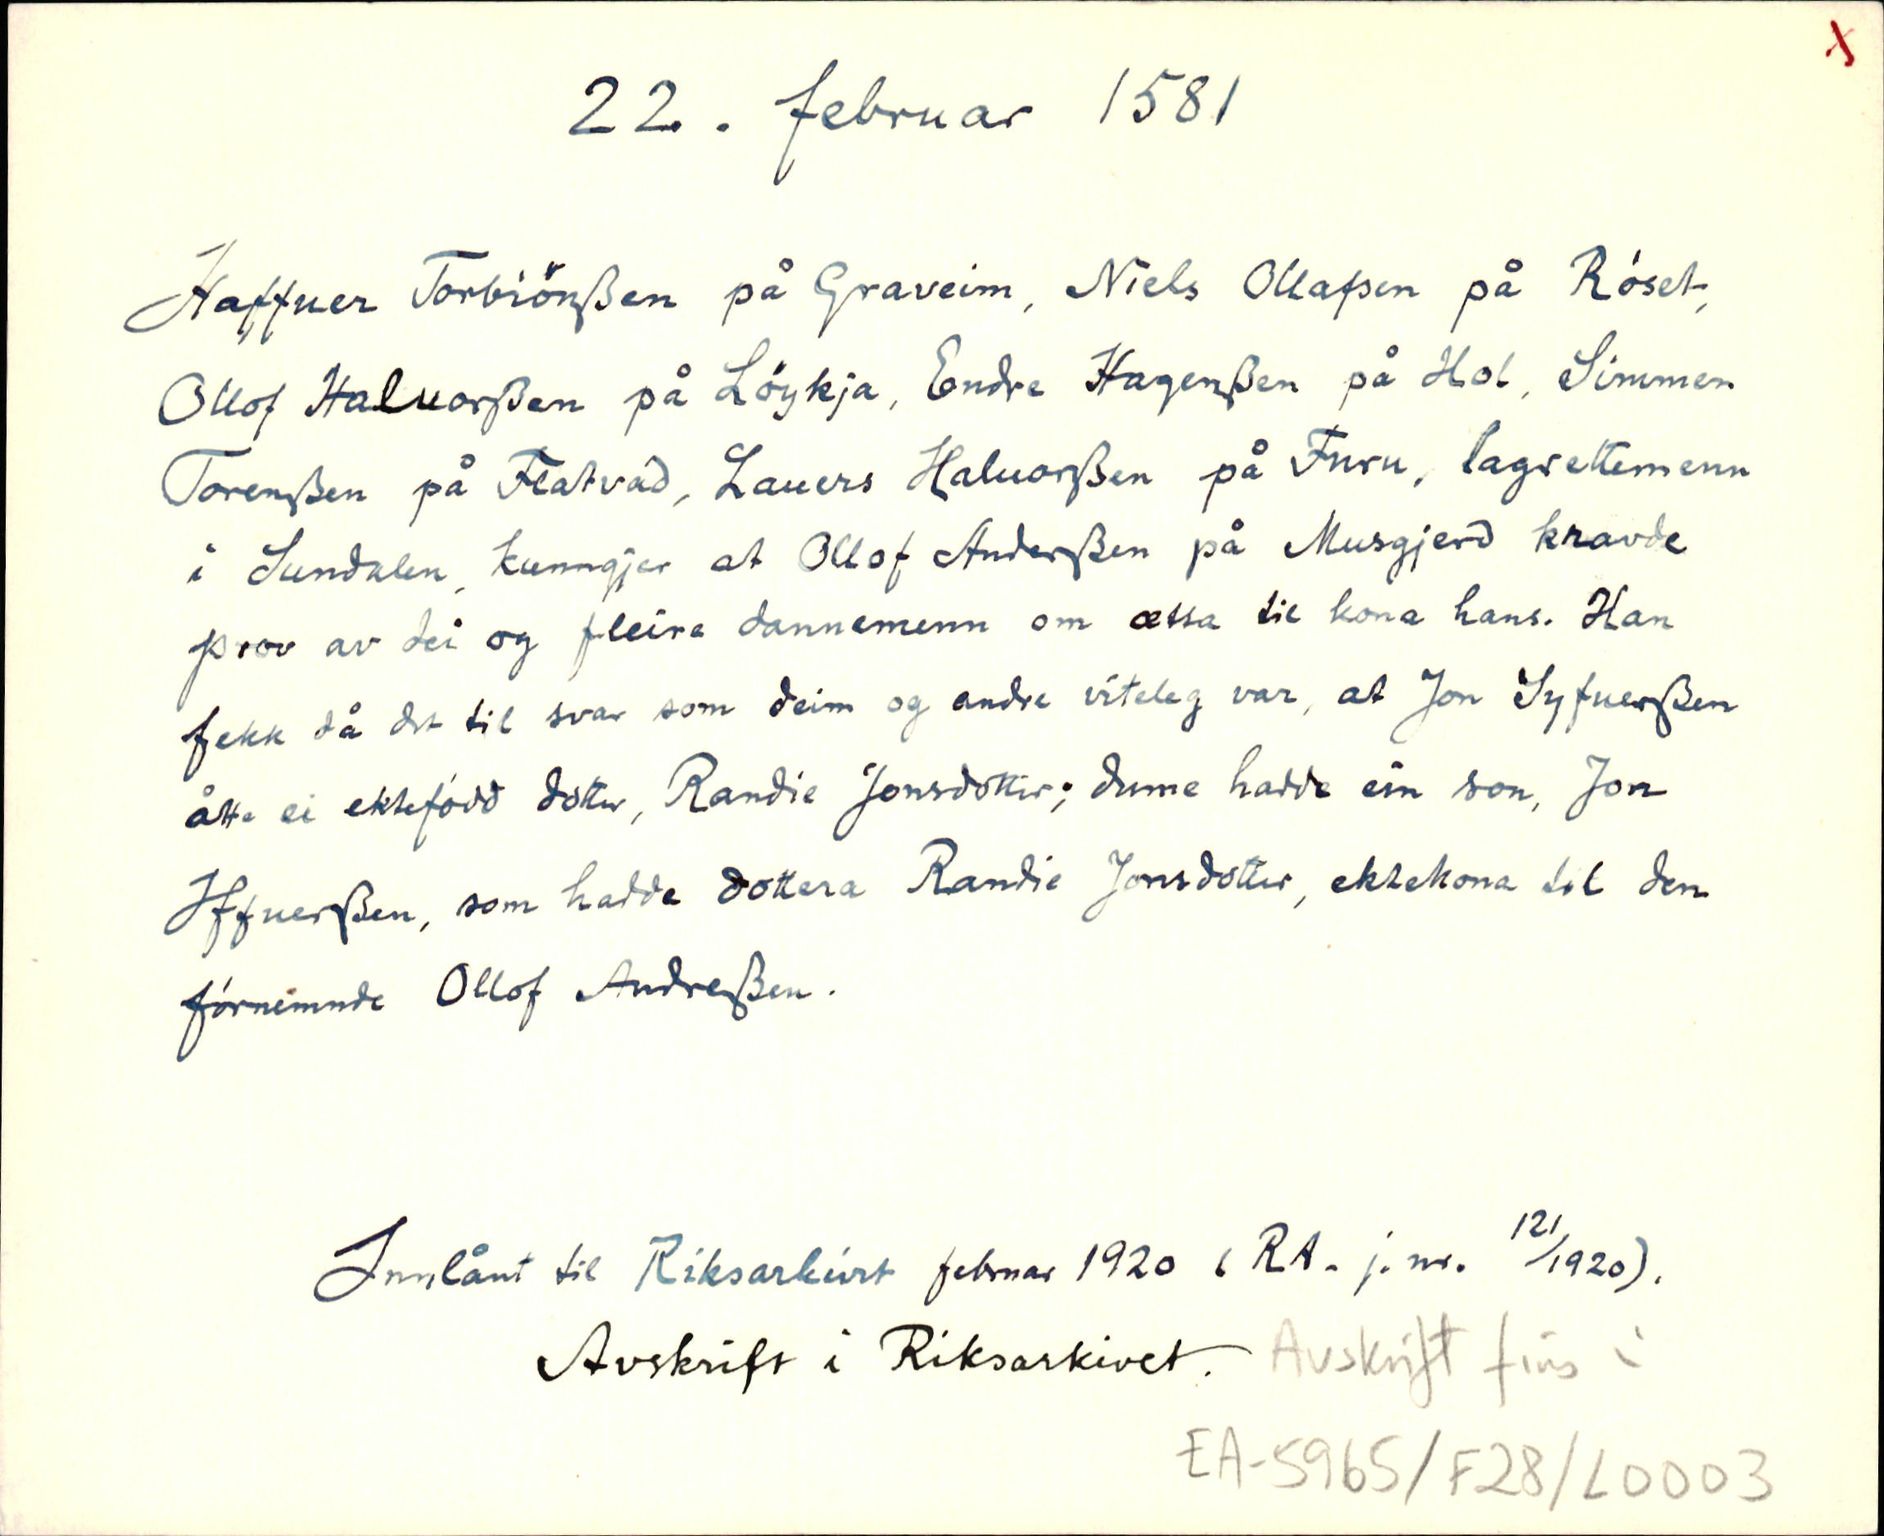 x
22. februar 1581
Haffuer Torbiönßen på Graveim, Niels Ollafsen på Röset,
Ollof Haluorßen på Löykja, Endre Hagenßen på Hol, Simmen
Torenßen på Flatvad, Lauers Haluorßen på Furu, lagrettemenn
i Sundalen, kunngjer at Ollof Anderßen på Musgjerd kravde
prov av dei og fleire dannemenn om ætta til kona hans. Han
fekk då det til svar som deim og andre viteleg var, at Jon Syfuerßen
åtte ei ektefödd dotter, Randie Jonsdotter; dume hadde ein son, Jon
Iffuerßen, som hadde dottera Randie Jonsdotter, ektekona til den
förnemnde Ollof Andreßen.
Innlånt til Riksarkivet februar 1920 (RA. j. nr. 121/1920).
Avskrift i Riksarkivet. Avskrift fins i
EA-5965/F28/L0003